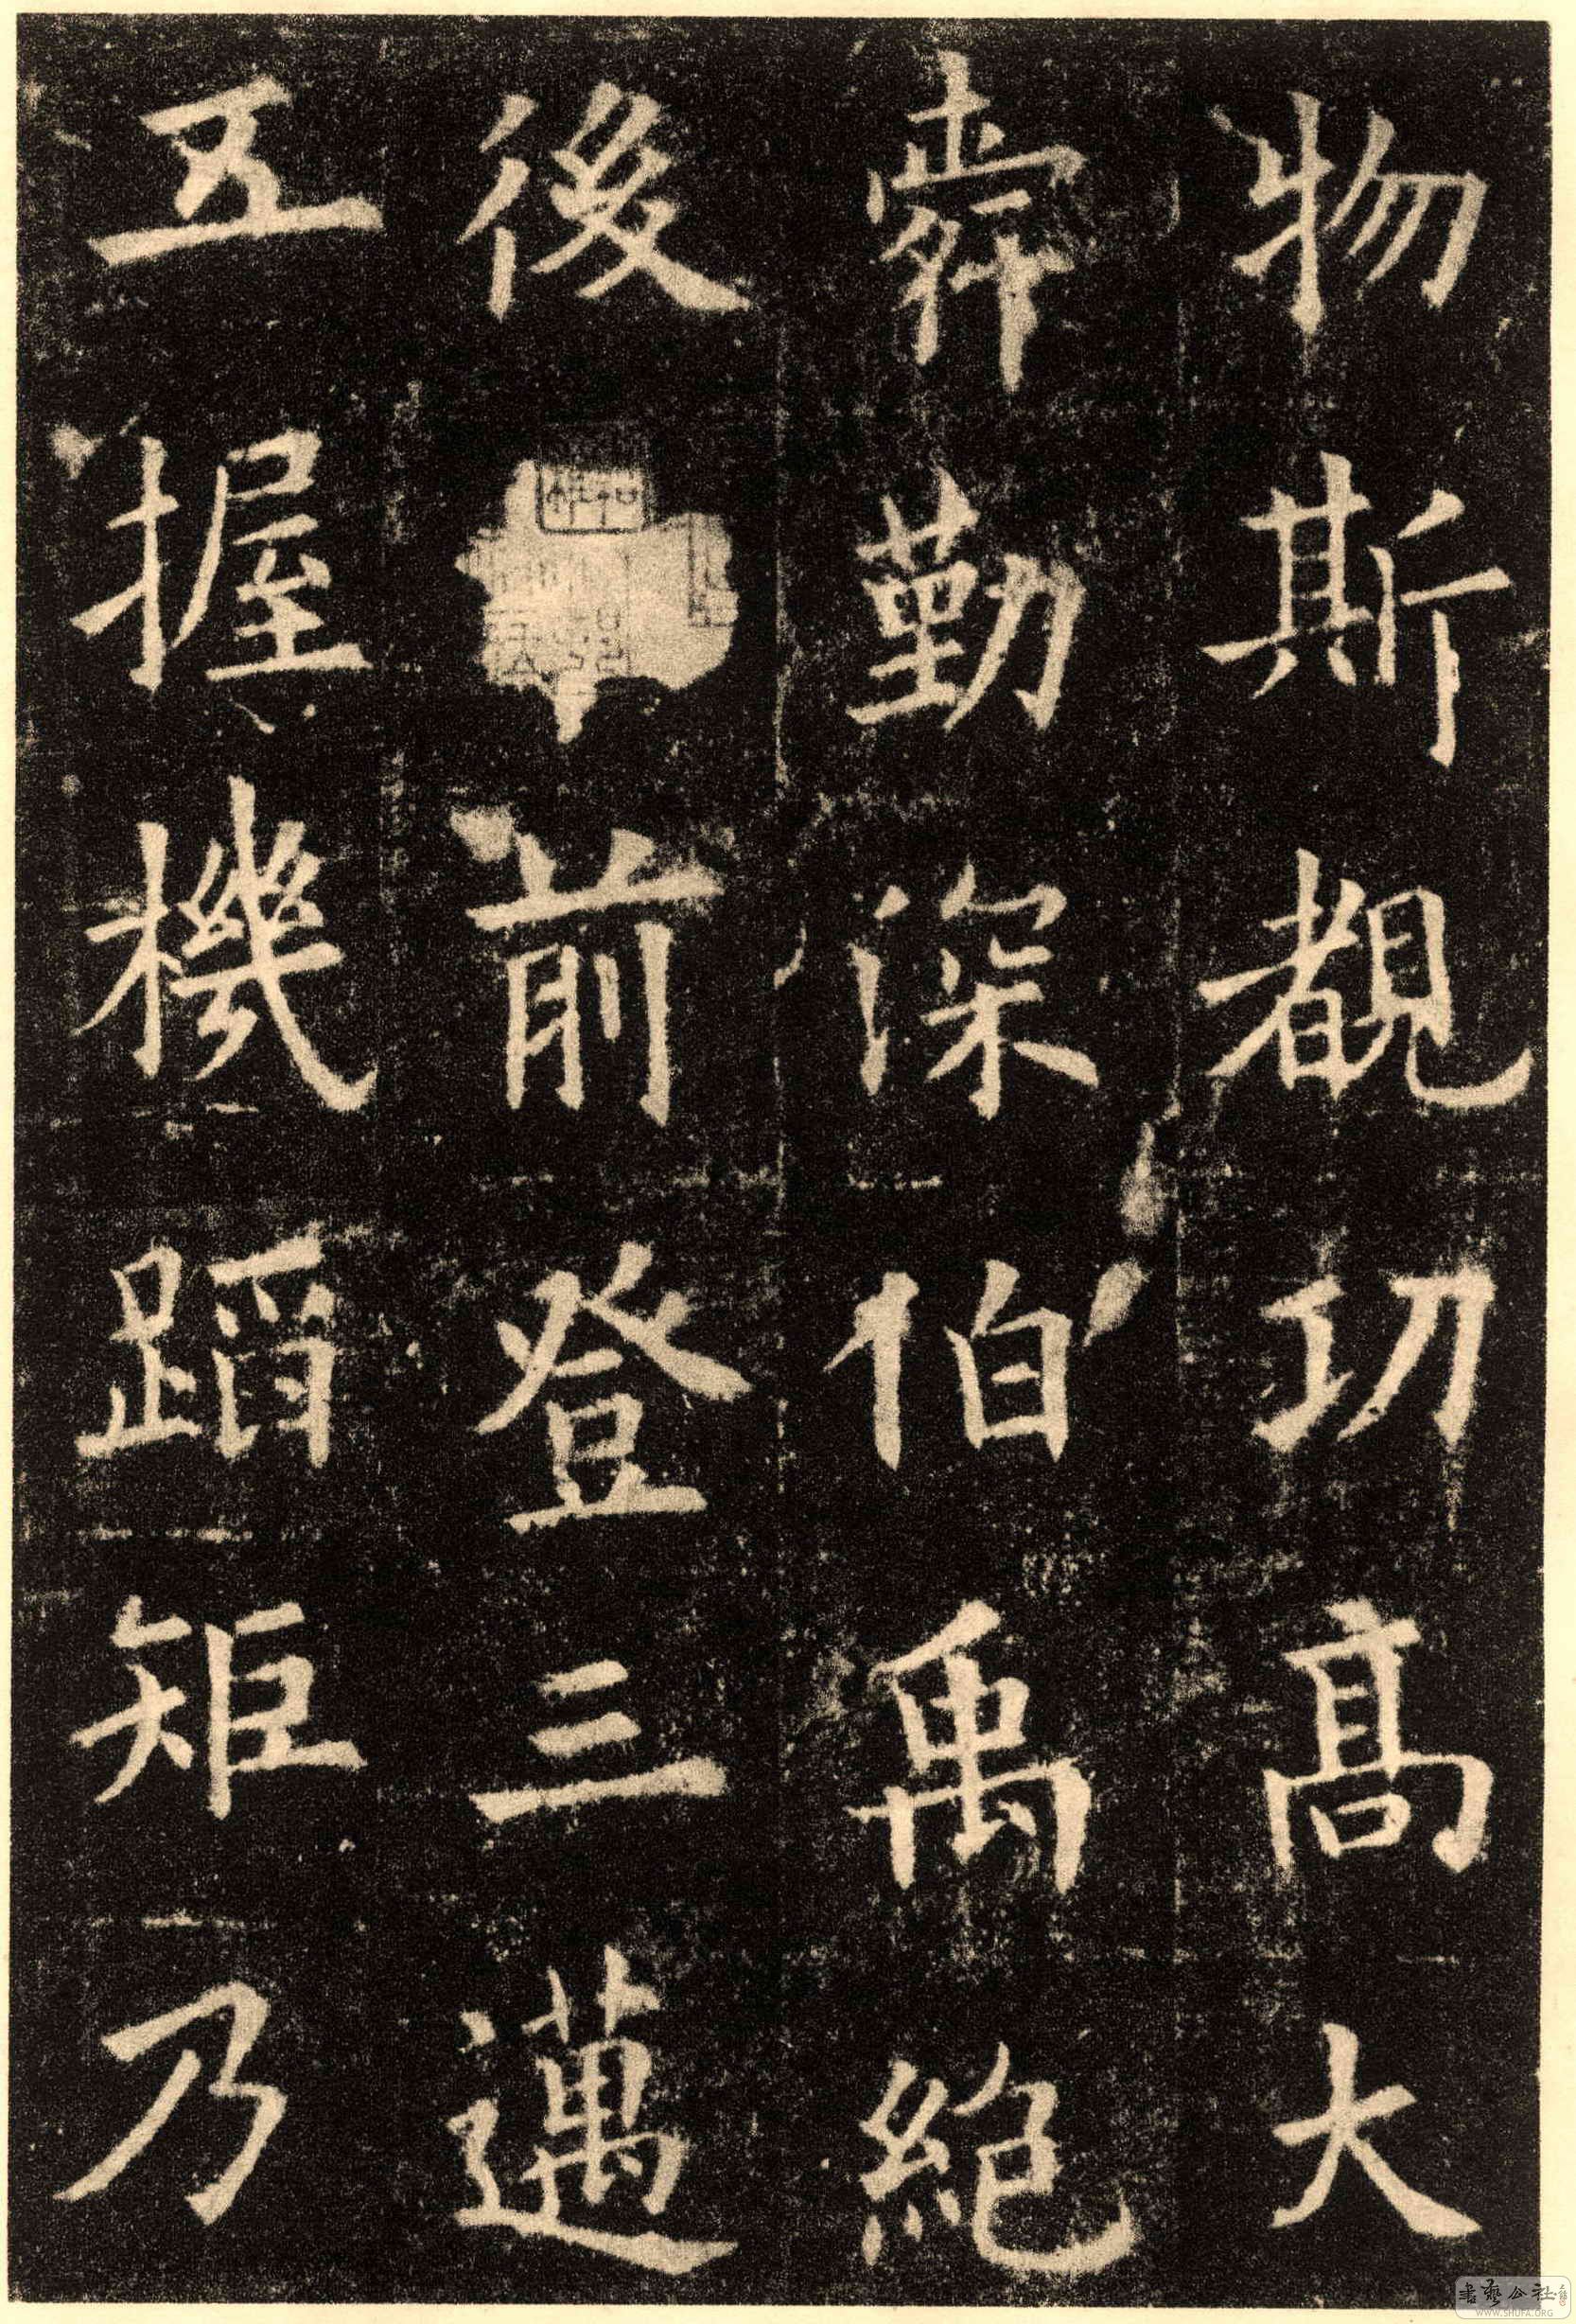 物斯覩功髙大
舜勤深伯禹絶
後前登三邁
五握機蹈矩乃
書藝公社
WWW.SHUFA.ORG